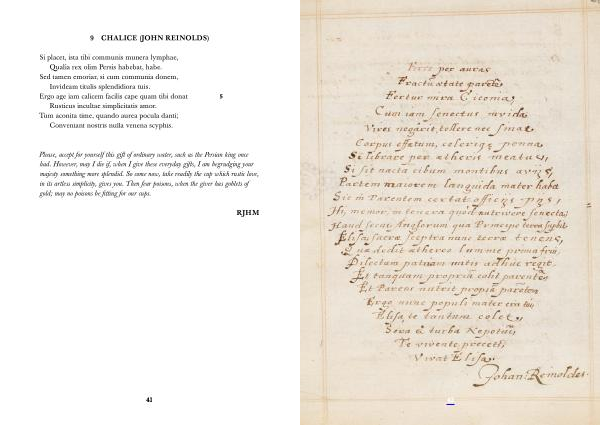 9 CHALICE (JOHN REINOLDS)
Si placet, ista tibi communis munera lymphae,
Qualia rex olim Persis habebat, habe.
Sed tamen emoriar, si cum communia donem,
Invideam titulis splendidiora tuis.
Ergo age iam calicem facilis cape quam tibi donat 5
Rusticus incultae simplicitatis amor.
Tum aconita time, quando aurea pocula danti;
Conveniant nostris nulla venena scyphis.
Please, accept for yourself this gift of ordinary water, such as the Persian king once
had. However, may I die if, when I give these everyday gifts, I am begrudging your
majesty something more splendid. So come now, take readily the cup which rustic love,
in its artless simplicity, gives you. Then fear poisons, when the giver has goblets of
gold; may no poisons be fitting for our cups.
RJHM
41
per auras
Fracta aetate
Fertur mira Ciconia,
Cum iam senectus
Vires negarit, tollere nec
Corpus effetum, celerique penna
Se librare per aetheris meatus,
Si sit nacta cibum montibus
Partem maiorem languida mater
Sic in Parentem certat officijs
Hi, memor, in tenera quod nutrivere senecta,
Haud secus Anglorum qua Princeps
Elisa, sacrae sceptra nunc terrae tenens,
dedit aethereo lumine
Dilectum patriam mitis adhuc regit,
Et tanquam propria colit parente
Et Parens nutrit propia
Ergo nunc populi mater
Elisa, te tantum colet,
Sera et turba Nepotum
Te vivente
Vivat Elisa.
Johan: Reinoldes.